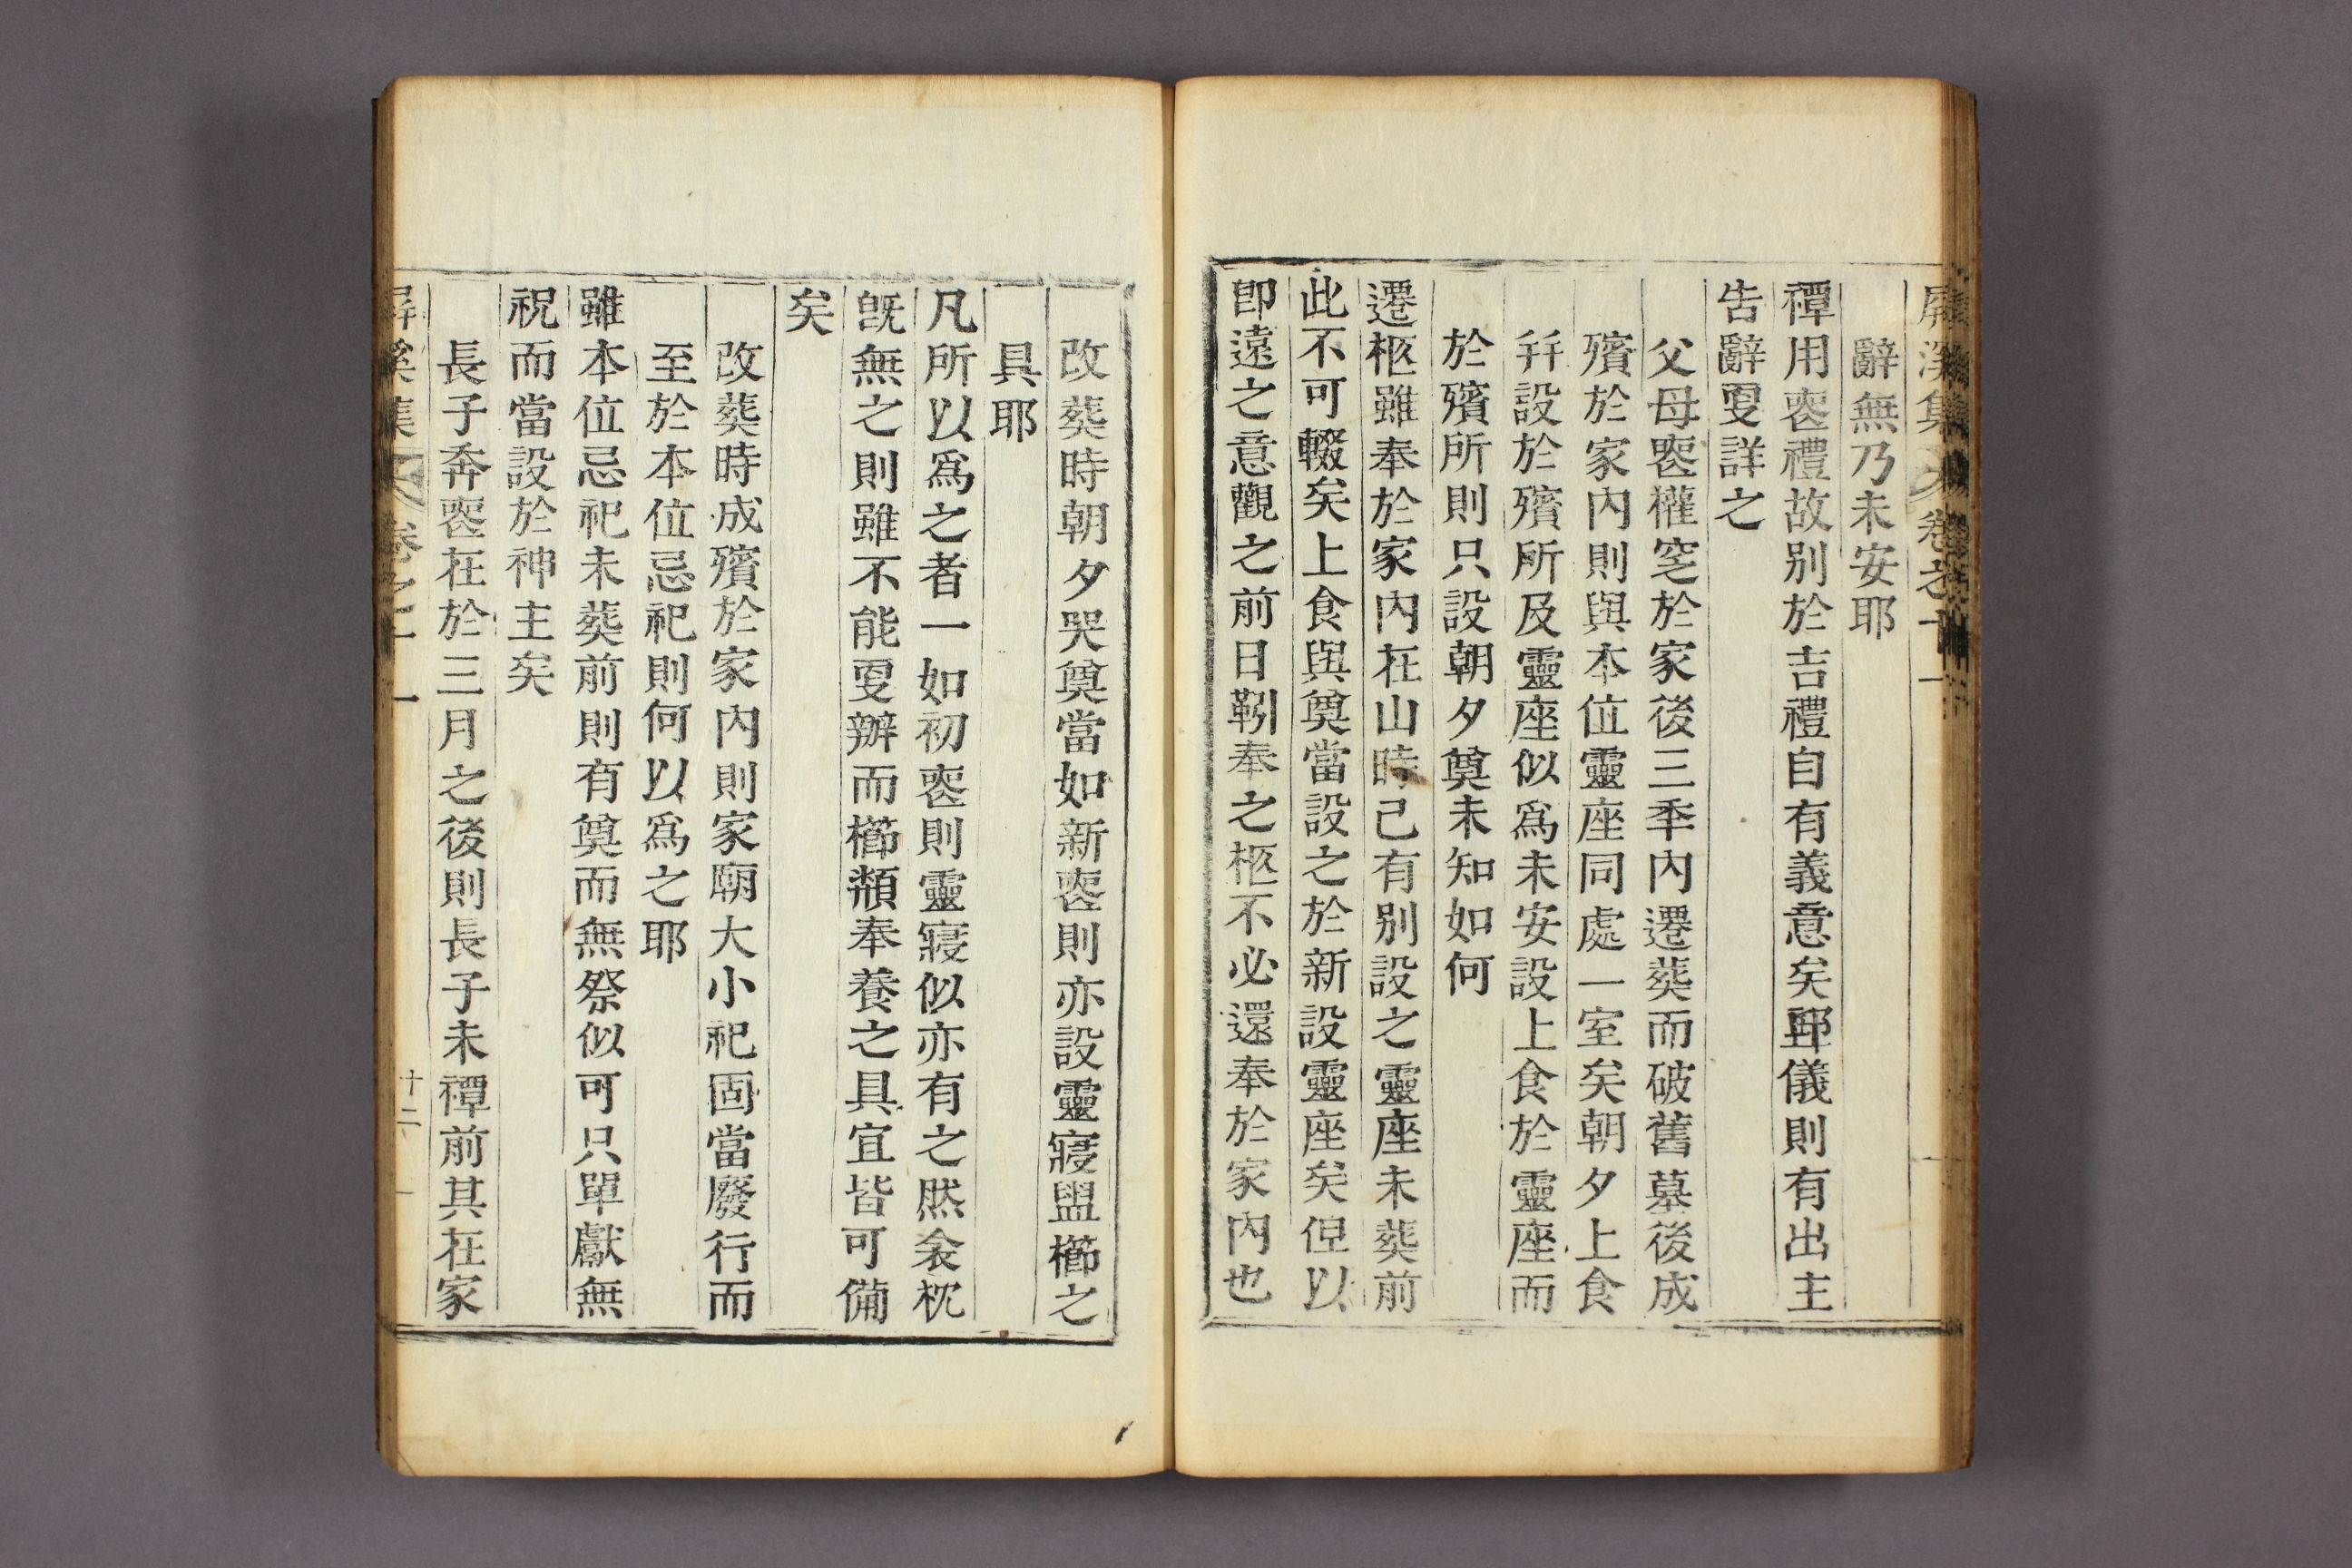 屛溪集 卷之十一
辭無乃未安耶
禫用喪禮故别於吉禮自有義意矣丘儀則有出主
告辭更詳之
父母喪權窆於家後三年內遷葬而破舊墓後成
殯於家內則與本位靈座同處一室矣朝夕上食
幷設於殯所及靈座似爲未安設上食於靈座而
於殯所則只設朝夕奠未知如何
遷柩雖奉於家內在山時已有别設之靈座未葬前
此不可輟矣上食與奠當設之於新設靈座矣但以
卽遠之意觀之前日靷奉之柩不必還奉於家內也
改葬時朝夕哭奠當如新喪則亦設靈寢盥櫛之
具耶
凡所以爲之者一如初喪則靈寢似亦有之然衾枕
旣無之則雖不能更辦而櫛頮奉養之具宜皆可備
矣
改葬時成殯於家內則家廟大小祀固當廢行而
至於本位忌祀則何以爲之耶
雖本位忌祀未葬前則有奠而無祭似可只單獻無
祝而當設於神主矣
長子奔喪在於三月之後則長子未禫前其在家
屛溪集 卷之十一 十二